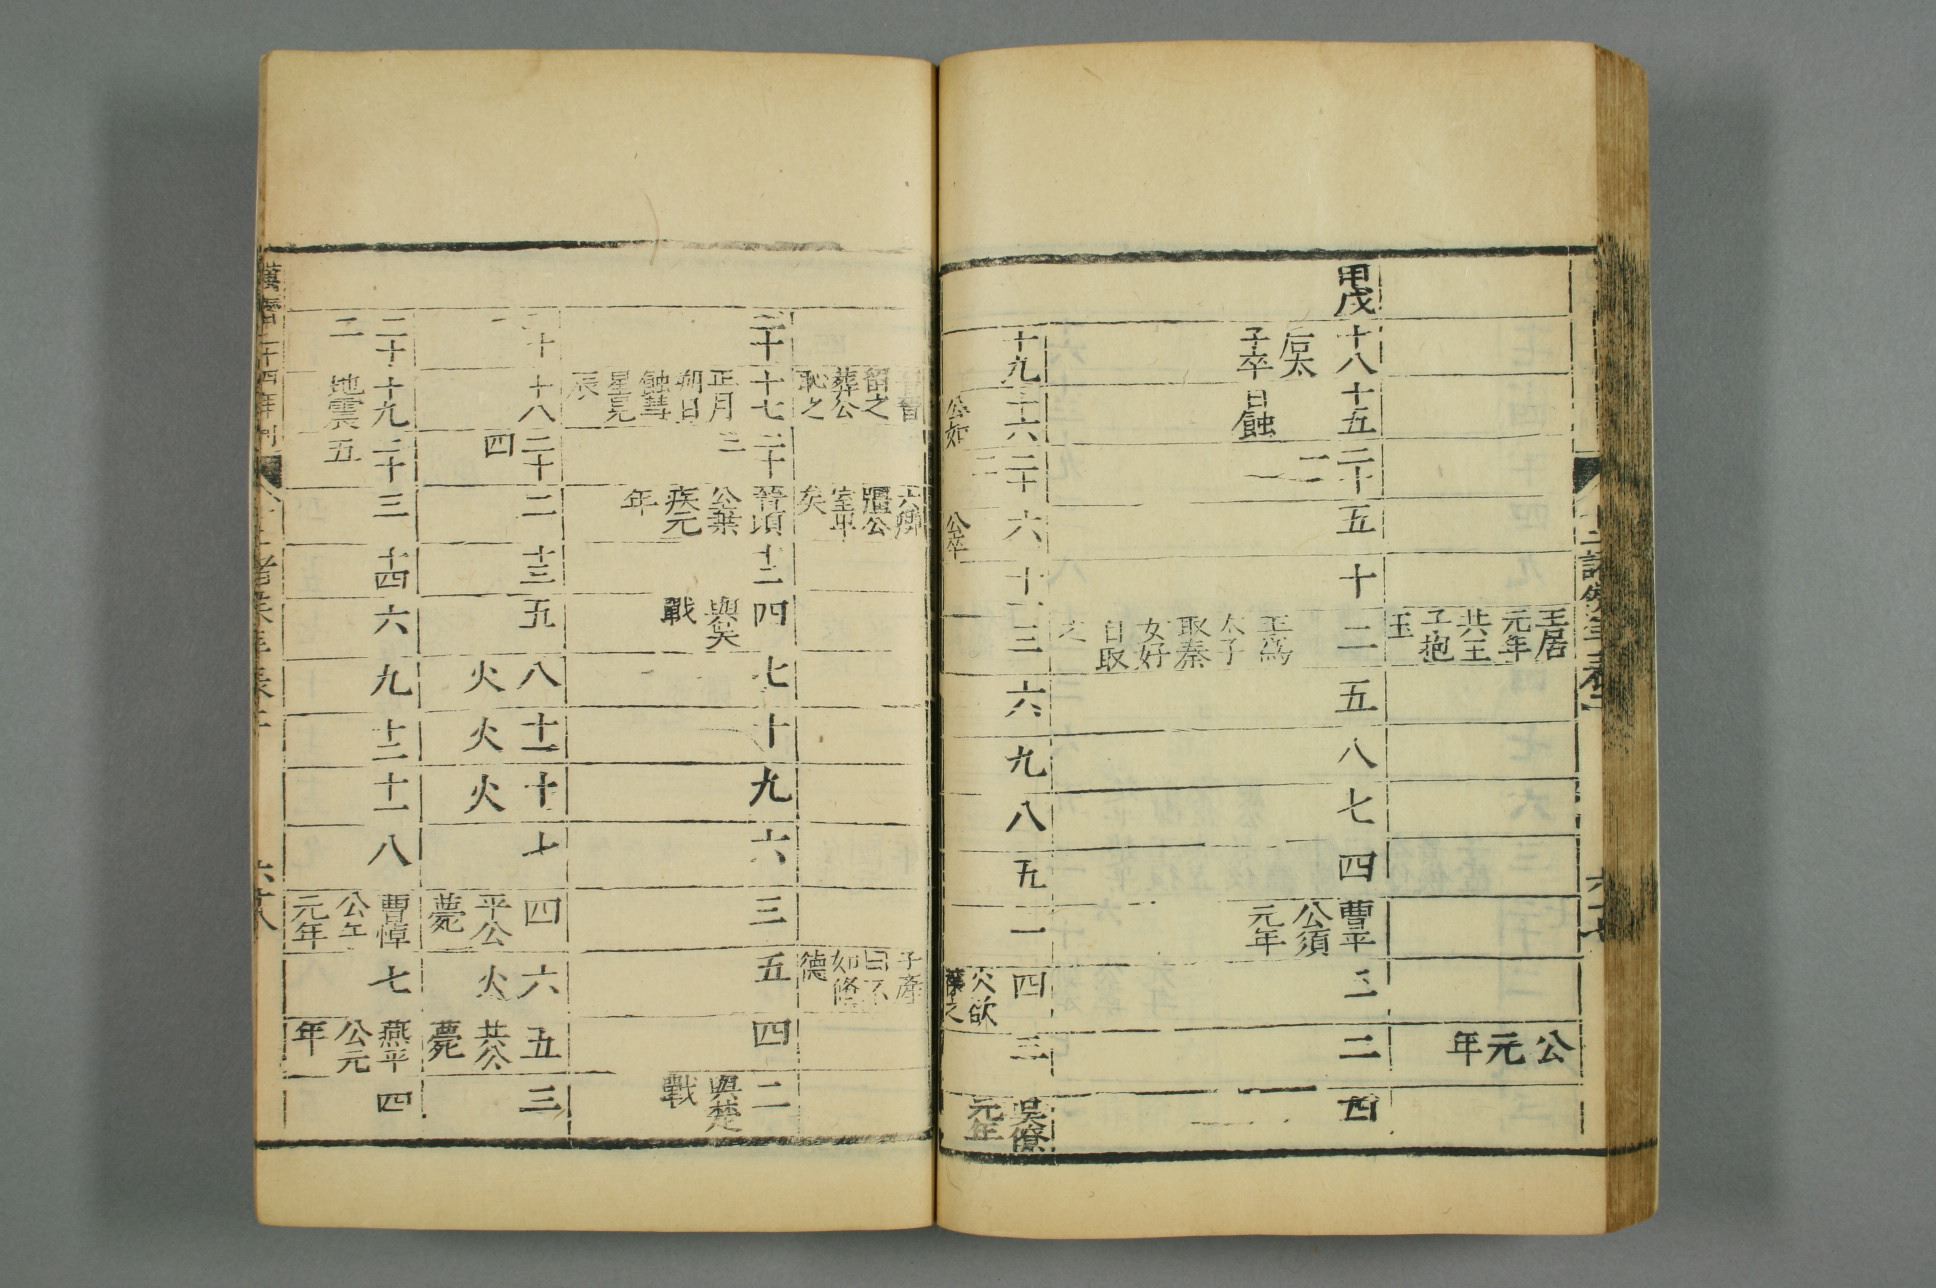 王居
元年
共王
子抱
玉
公元年
甲戌
十八
后太
子卒
十五
日蝕
二十
一
五
十
二
王爲
太子
取秦
女好
自取
之
五
八
七
四
曹平
公須
元年
三
二
四
十九
十六
公如
二十
二
六
公卒
十
三
六
九
八
五
一
四
火欲
禳之
三
吳僚
元年
留之
葬公
恥之
六卿
彊公
室卑
矣
子產
曰不
如修
德
二十
十七
正月
朔日
蝕彗
星見
辰
二十
三
晉頃
公棄
疾元
年
十二
四
與吳
戰
七
十
九
六
三
五
四
二
與楚
戰
十八
二十
四
二
十三
五
八
火
十一
火
十
火
七
四
平公
薨
六
火
五
共公
薨
三
二十
二
十九
地震
二十
五
三
十四
六
九
十二
十一
八
曹悼
公午
元年
七
燕平
公元
年
四